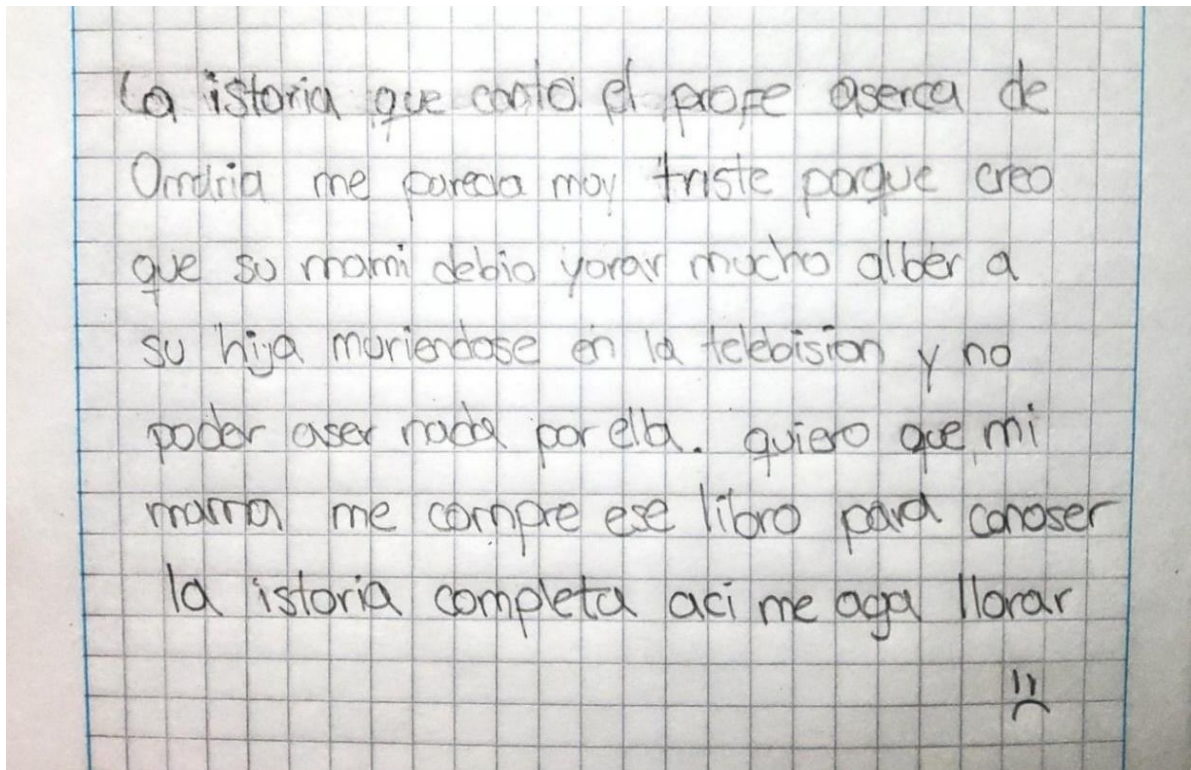 La istoria que conto el profe aserca de
Omaira me parecia muy triste porque creo
que su mami debio yorar mucho alber a
su hija muriendose en la telebision y no
poder aser nada por ella. quiero que mi
mama me compre ese libro para conoser
la istoria completa aci me aga llorar